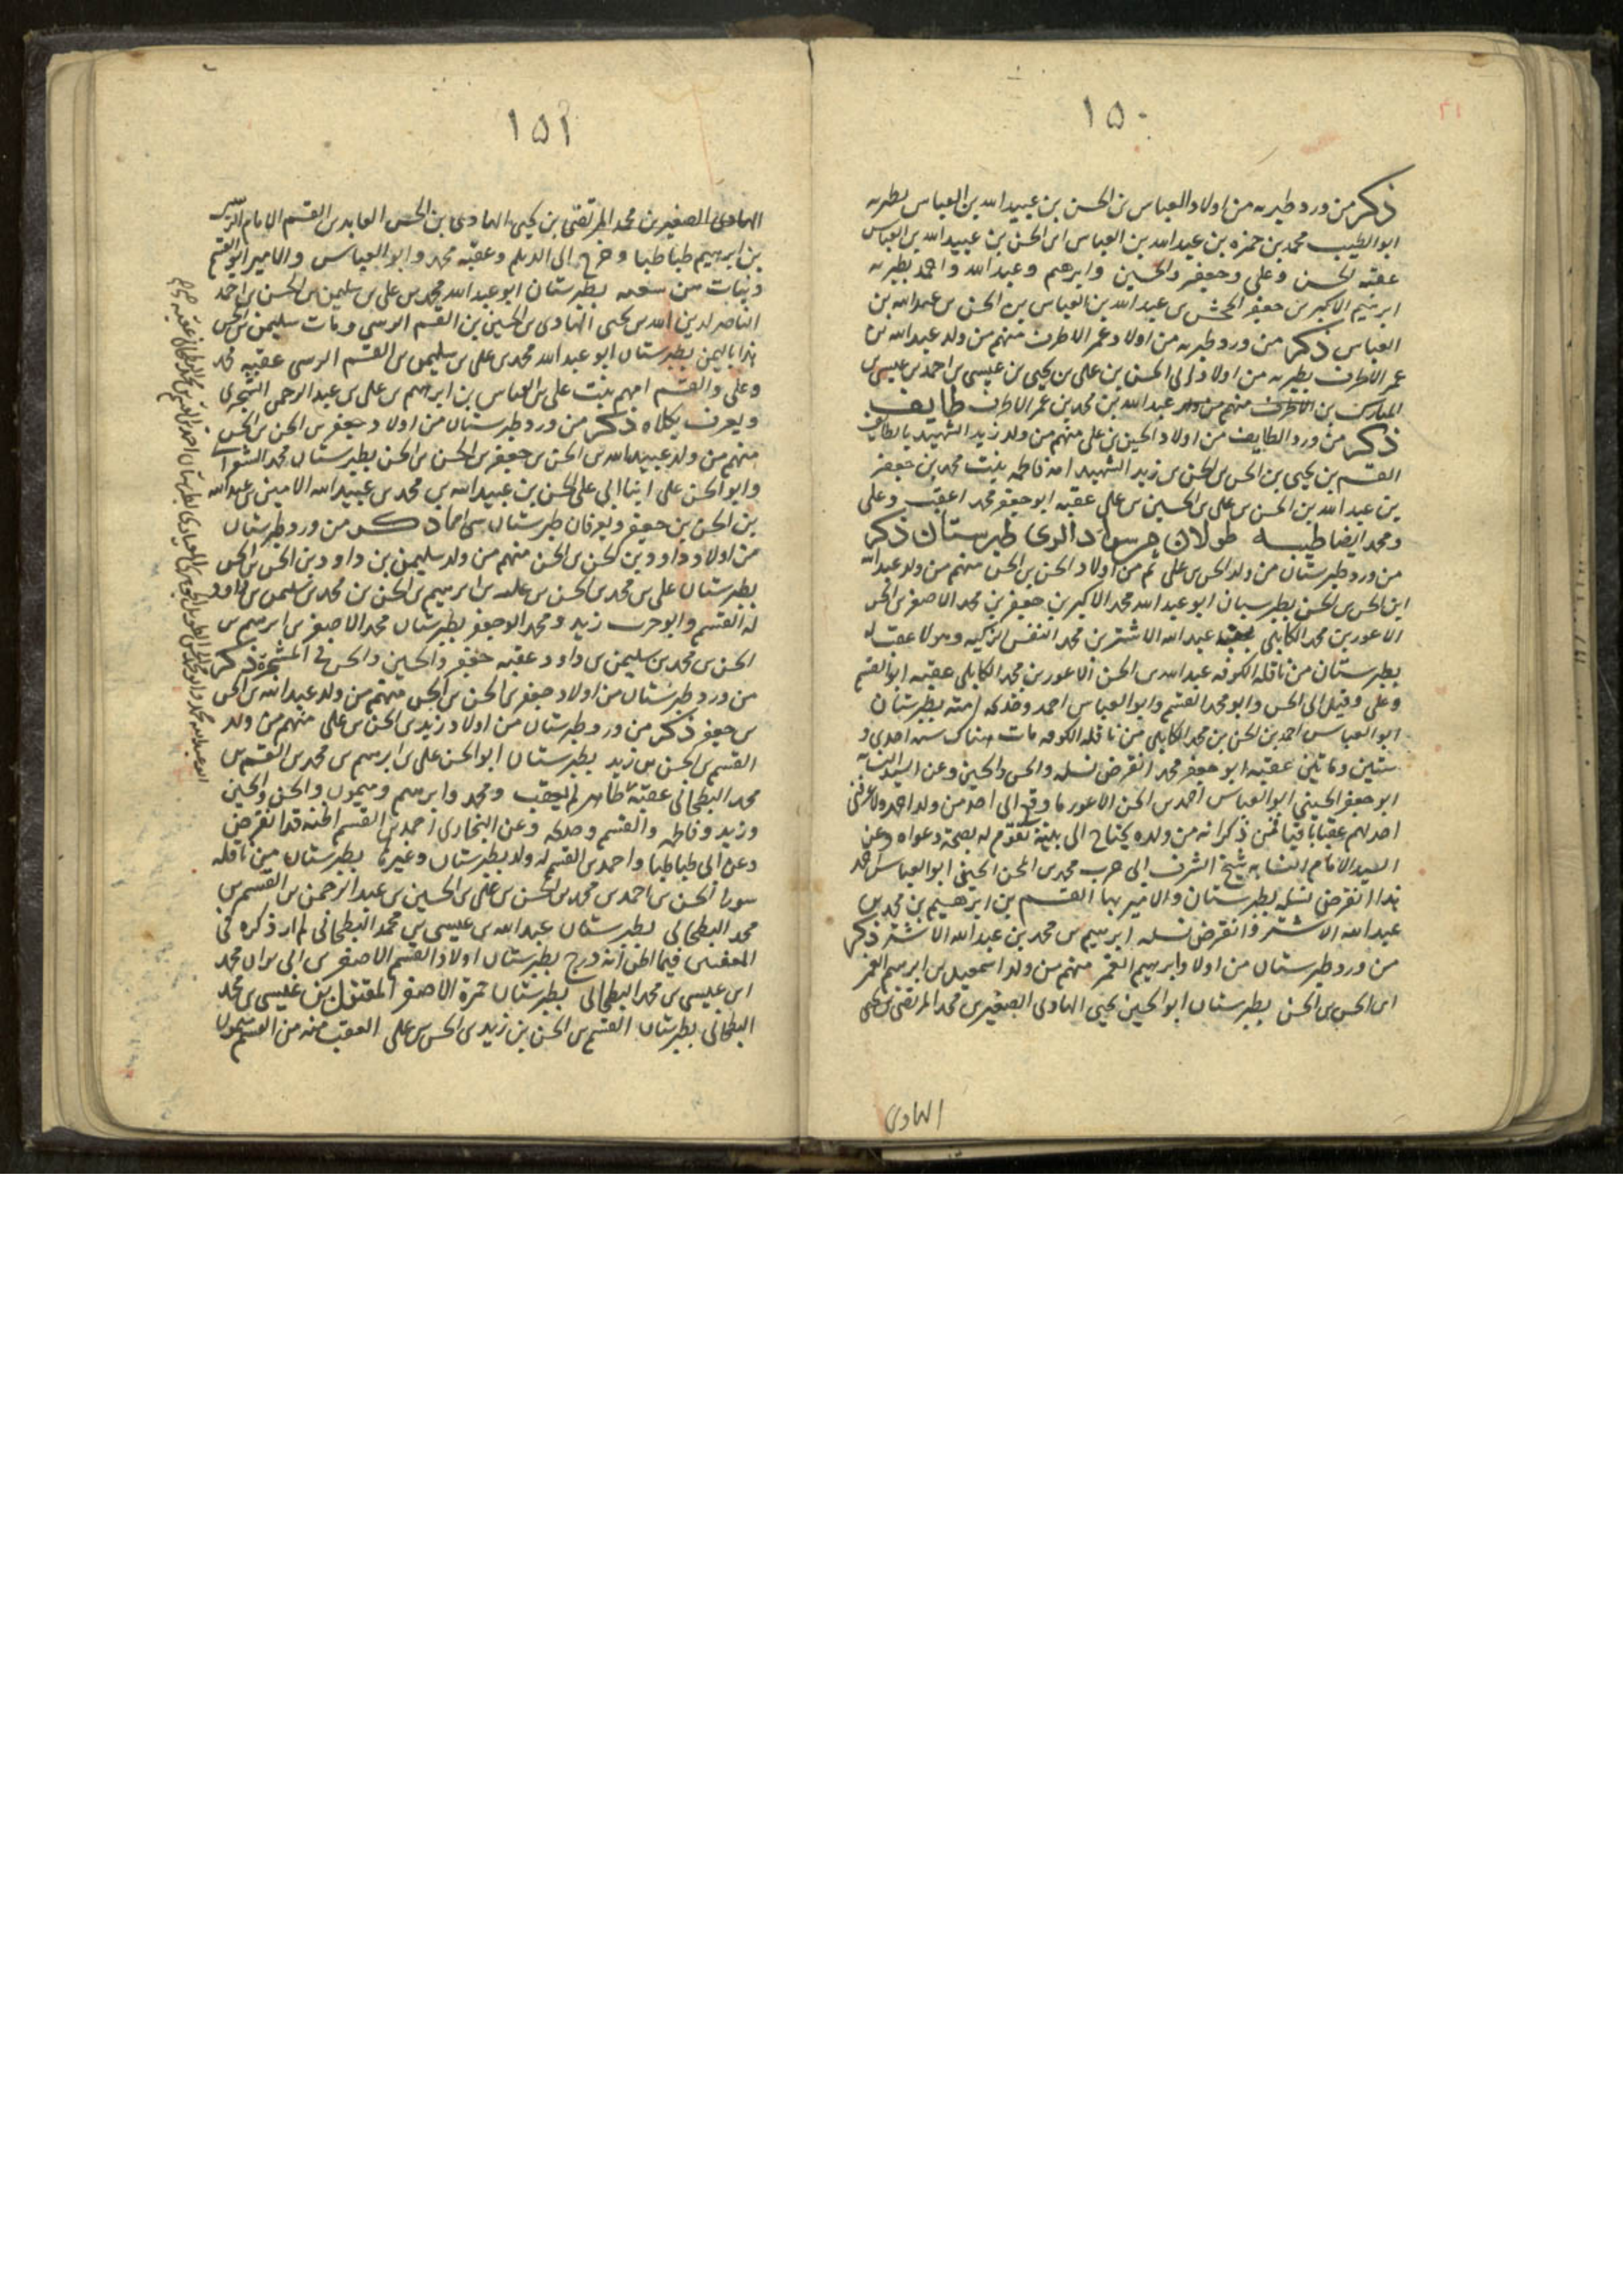 ١٥٠
ذكر من ورد طبريه من اولاد العباس بن الحسن بن عبيد الله بن العباس بطبريه
ابو الطيب محمد بن حمزه بن عبد الله بن العباس ابن الحسن بن عبيد الله بن العباس
عقبه الحسن وعلى وجعفر والحسين وابرهيم وعبد الله واحمد بطبريه
ابرهيم الاكبر بن جعفر بن عبد الله بن العباس بن الحسن بن عبد الله بن
العباس ذكر من ورد طبريه من اولاد عمر الاطرف منهم من ولد عبد الله بن
عمر الاطرف بطبريه من اولاد ابى الحسن بن على بن يحيى بن عيسى بن احمد بن عيسى بن
المبارك بن عبد الله بن محمد بن عمر الاطرف طايف
ذكر من ورد الطايف من اولاد الحسين بن على منهم من ولد زيد الشهيد بالطايف
القسم بن يحيى بن الحسن بن الحسن بن زيد الشهيد امه فاطمه بنت محمد بن جعفر
بن عبد الله بن الحسن بن على بن الحسين بن على عقبه ابو جعفر محمد اعقب وعلى
ومحمد ايضا طيبه طولان من سواد الرى طبرستان ذكر
من ورد طبرستان من ولد الحسن بن على ثم من اولاد الحسن بن الحسن منهم من ولد عبد الله
ابن الحسن بن الحسن بطبرستان ابو عبد الله محمد الاكبر بن جعفر بن محمد الاصغر بن الحسن
الاعور بن محمد الكابلى بن عبد الله الاشتر بن محمد النفس الزكيه وهو لا عقب له
بطبرستان من ناقله الكوفه عبد الله بن الحسن الاعور بن محمد الكابلى عقبه ابو القسم
وعلى وقيل ابى الحسن وابو محمد القسم وابو العباس احمد وخديجه امته بطبرستان
ابو العباس احمد بن الحسن بن محمد الكابلى من ناقله الكوفه مات هناك سنه احدى و
ستين ومائتين عقبه ابو جعفر محمد انقرض نسله والحسن والحسين وعن السيد النسابه
ابو جعفر الحسينى ابو العباس احمد بن الحسن الاعور ما وقع الى احد من ولد احمد ولا عرفنى
احد لهم عقبا باقيا فمن ذكر انه من ولده يحتاج الى بينة تقوم له بصحة دعواه وعن
السيد الامام النسابه شيخ الشرف ابى حرب محمد بن المحسن الحسينى ابو العباس احمد
هذا انقرض نسله بطبرستان والامير بها القسم بن ابرهيم بن محمد بن
عبد الله الاشتر وانقرض نسله ابرهيم بن محمد بن عبد الله الاشتر ذكر
من ورد طبرستان من اولاد ابرهيم الغمر منهم من ولد اسمعيل بن ابرهيم الغمر
ابن الحسن بن الحسن بطبرستان ابو الحسين يحيى الهادى الصغير بن محمد المرتضى بن يحيى
الهادى
١٥١
الهادى الصغير بن محمد المرتضى بن يحيى الهادى بن الحسين العابد بن القسم الامام الرسى
بن ابرهيم طباطبا وخرج الى الديلم وعقبه محمد وابو العباس والامير ابو القسم
وبنات بطبرستان ابو عبد الله محمد بن على بن سليمن بن الحسن بن احمد
الناصر لدين الله بن يحيى الهادى بن الحسين بن القسم الرسى ومات سليمن بن الحسن
هذا باليمن بطبرستان ابو عبد الله محمد بن على بن سليمن بن القسم الرسى عقبه محمد
وعلى والقسم امهم بنت على بن العباس بن ابراهيم بن على بن عبد الرحمن الشجرى
ويعرف ذكر من ورد طبرستان من اولاد جعفر بن الحسن بن الحسن
منهم من ولد عبيد الله بن الحسن بن جعفر بن الحسن بن الحسن بطبرستان محمد
وابو الحسن على ابنا ابى على الحسن بن عبيد الله بن محمد بن عبيد الله الامير بن عبد الله
بن الحسن بن جعفر ويعرفان طبرستان ذكر من ورد طبرستان
من اولاد داود بن الحسن بن الحسن منهم من ولد سليمن بن داود بن الحسن بن الحسن
بطبرستان على بن محمد بن الحسن بن على بن ابرهيم بن الحسن بن محمد بن سليمن بن داود
له القسم وابو حرب زيد ومحمد ابو جعفر بطبرستان محمد الاصغر بن ابرهيم بن
الحسن بن محمد بن سليمن بن داود عقبه جعفر والحسين والحسن فى المشجرة ذكر
من ورد طبرستان من اولاد جعفر بن الحسن بن الحسن منهم من ولد عبد الله بن الحسن
بن جعفر ذكر من ورد طبرستان من اولاد زيد بن الحسن بن على منهم من ولد
القسم بن الحسن بن زيد بطبرستان ابو الحسن على بن ابرهيم بن محمد بن القسم بن
محمد البطحانى عقبه طاهر لم يعقب ومحمد وابرهيم وميمون والحسن والحسين
وزيد وفاطمه والقسم وعن البخارى احمد بن القسم اظنه قد انقرض
وعن ابى طباطبا واحمد بن القسم له ولد بطبرستان وغيرها بطبرستان من ناقله
سورا الحسن بن احمد بن محمد بن الحسن بن على بن الحسين بن عبد الرحمن بن القسم بن
محمد البطحانى بطبرستان عبد الله بن عيسى بن محمد البطحانى لم ار ذكره فى
المعقبين فيما اظن انه درج بطبرستان اولاد القسم الاصغر بن محمد
ابن عيسى بن محمد البطحانى بطبرستان حمزة الاصغر المقتول بن عيسى بن محمد
البطحانى بطبرستان القسم بن الحسن بن زيد بن الحسن بن على العقب منه من القسم